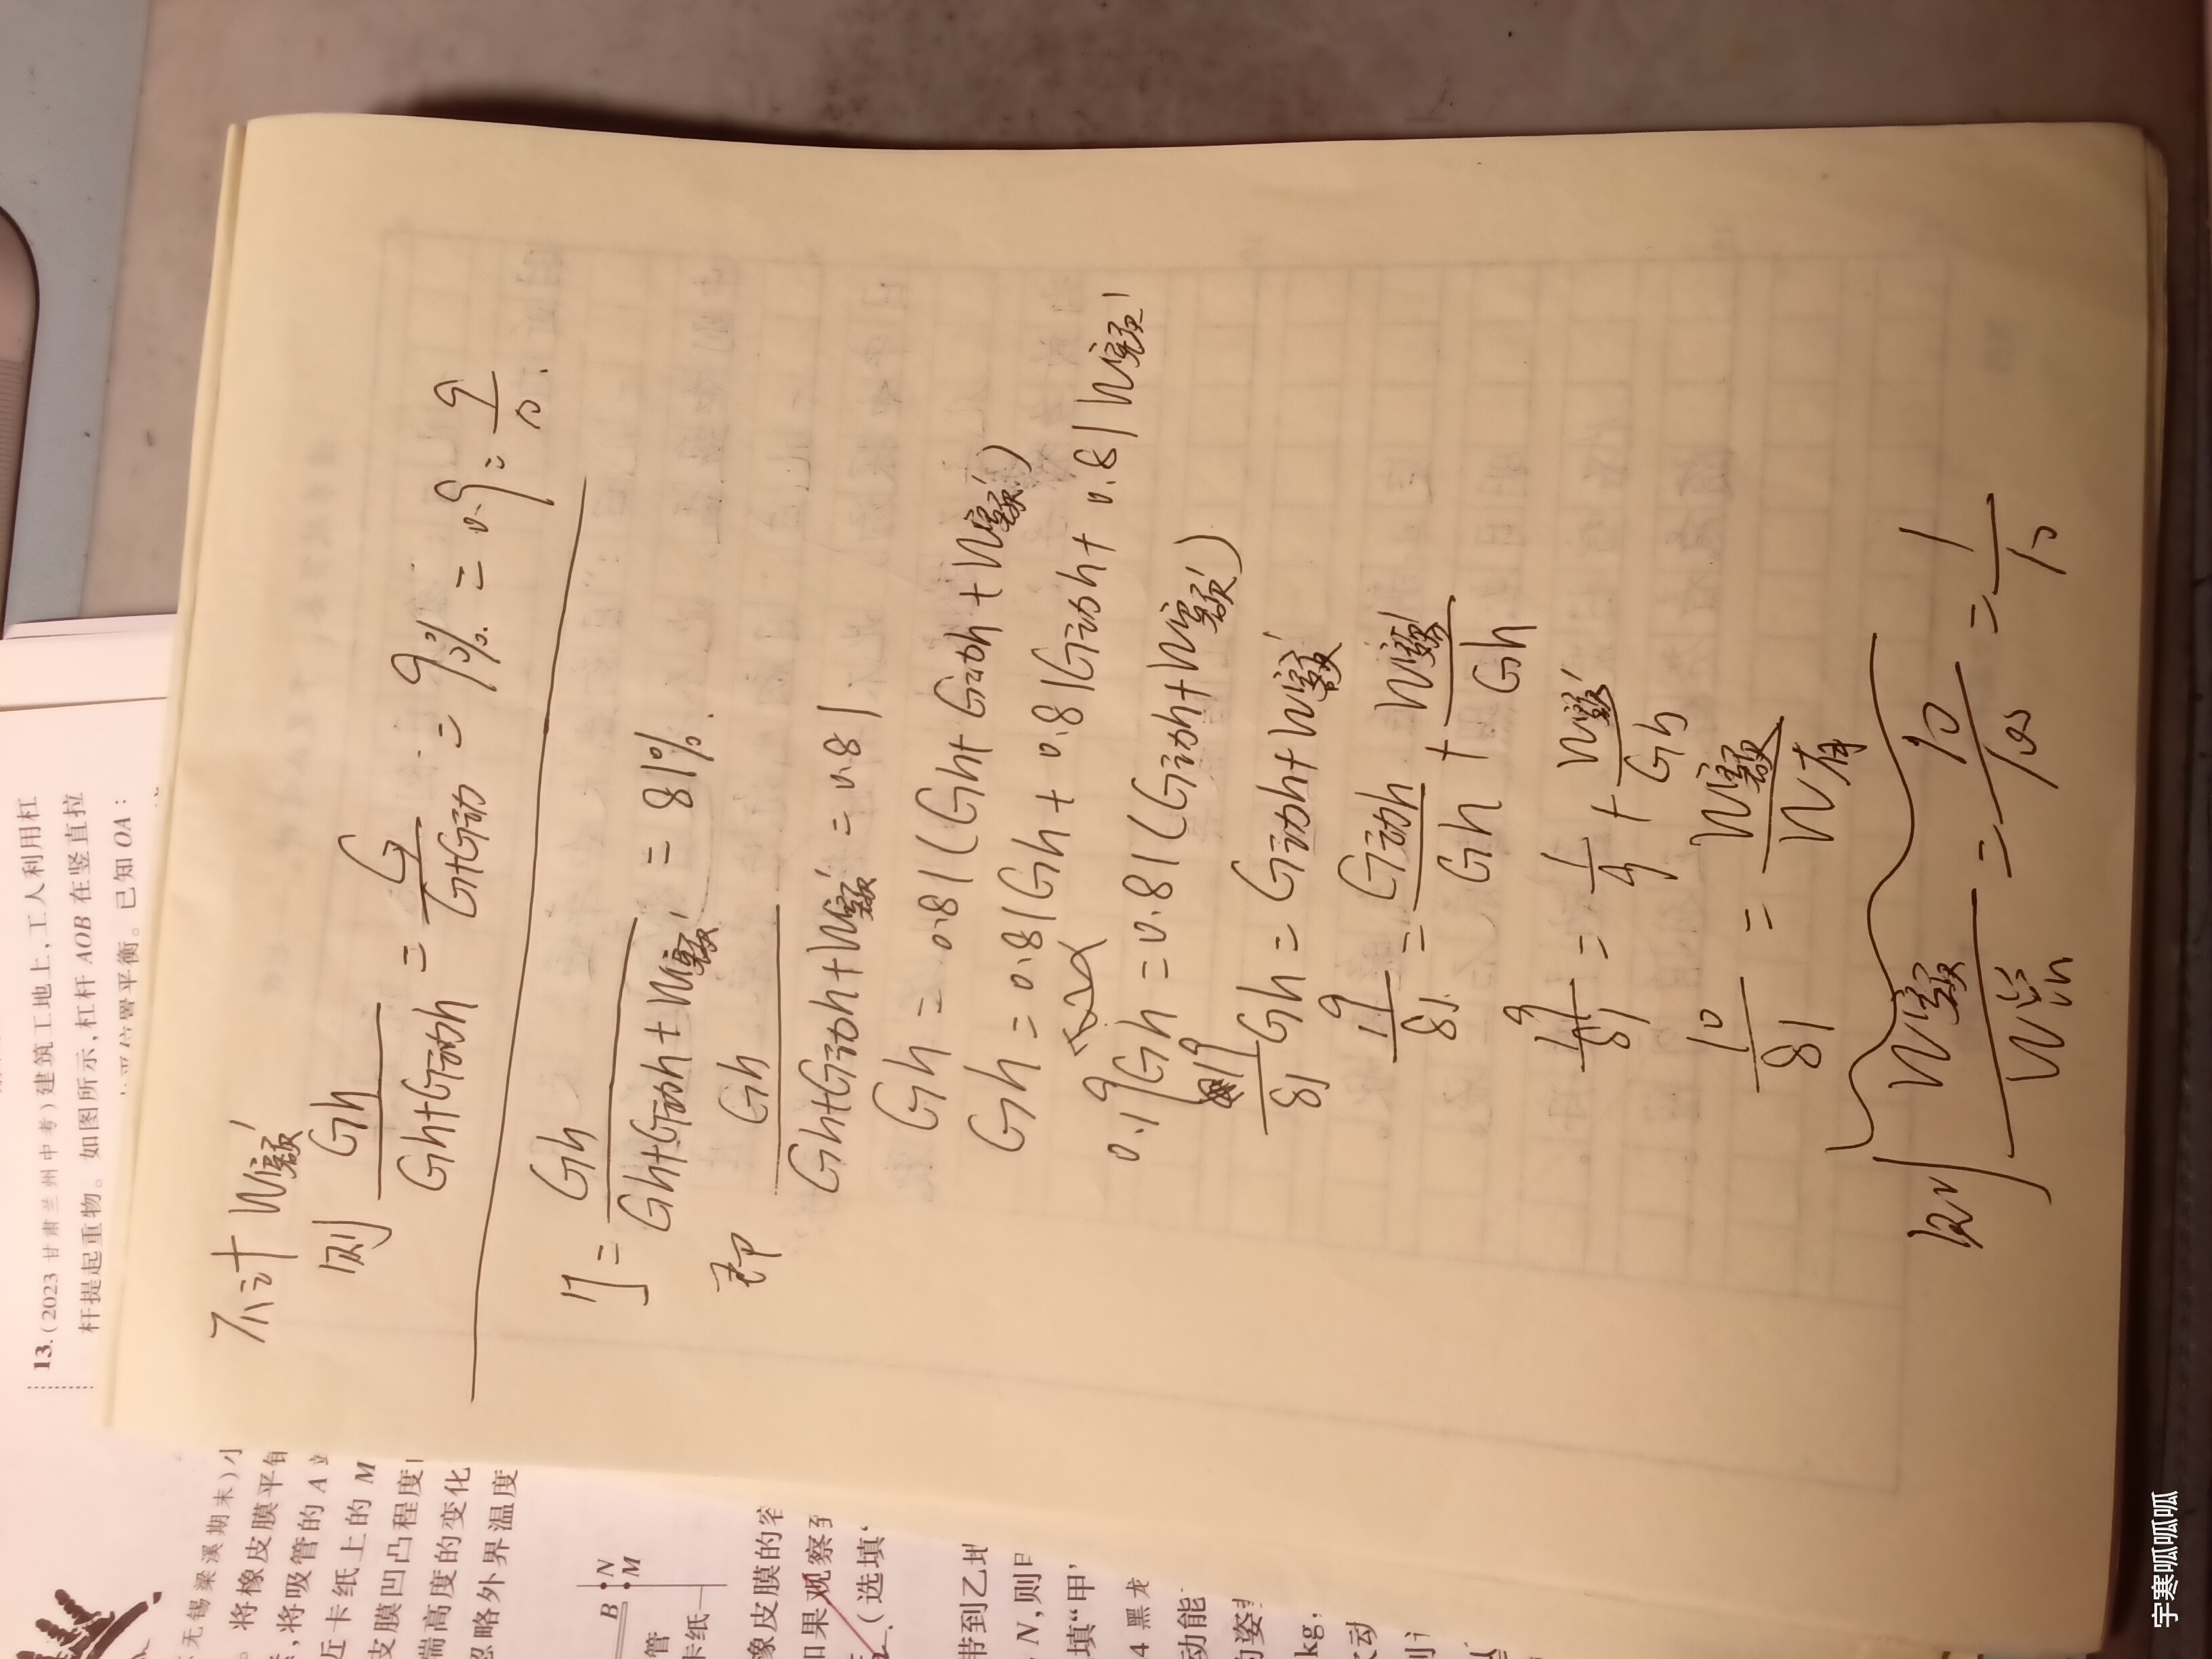 不计W额'
则 Gh/(Gh+G动h) = G/(G+G动) = 90% = 0.9 = 9/10.
η = Gh/(Gh+G动h+W额') = 81%.
即 Gh/(Gh+G动h+W额') = 0.81
Gh = 0.81(Gh+G动h+W额')
Gh = 0.81Gh + 0.81G动h + 0.81W额'
0.19Gh = 0.81(G动h+W额')
19/81 Gh = G动h+W额'
19/81 = G动h/Gh + W额'/Gh
19/81 = 1/9 + W额'/Gh
10/81 = W额'/W有
则 W额'/W总 = 10/100 = 1/10
13.(2023甘肃兰州中考)建筑工地上,工人利用杠
杆提起重物。如图所示,杠杆AOB在竖直拉
位置平衡。已知OA:
无锡梁溪期末)小
将橡皮膜平
,将吸管的A
近卡纸上的M
皮膜凹凸程度
端高度的变化
忽略外界温度
B
N
M
管
卡纸
象皮膜的容
如果观察到
(选填“
带到乙地
N,则
填“甲”
4黑龙
动能
的姿
kg,
宇寒呱呱呱